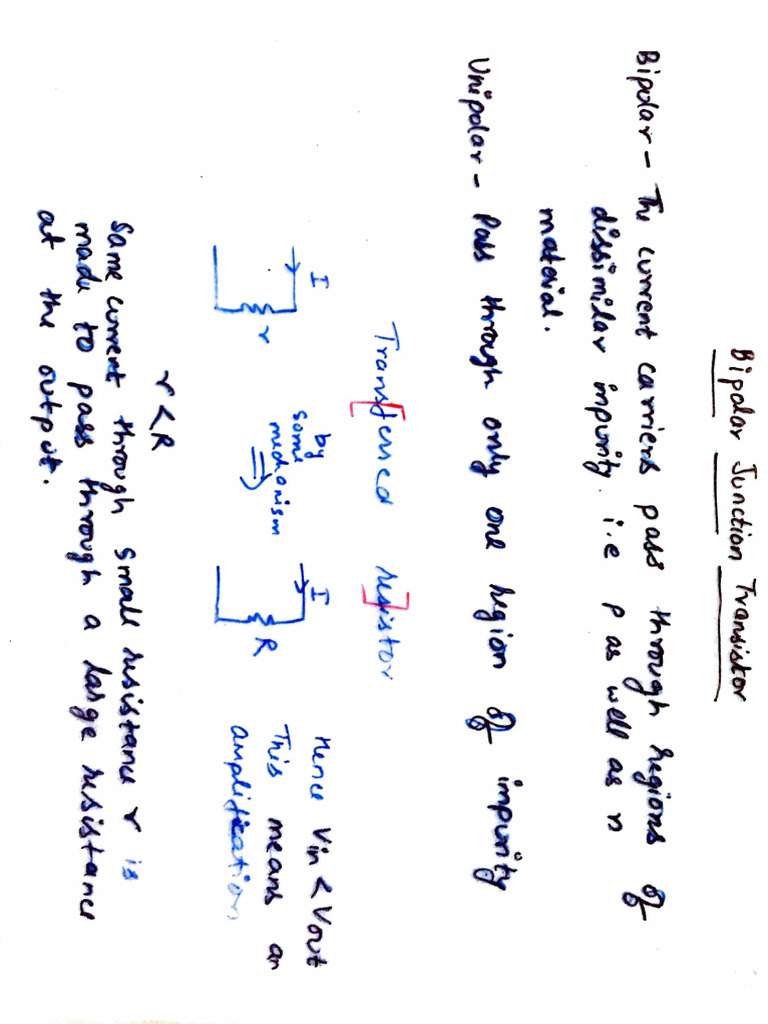 Bipolar Junction Transistor
Bipolar - The current carriers pass through regions of
dissimilar impurity. i.e p as well as n
material.
Unipolar - Pass through only one region of impurity
Transferred resistor
I
r
by
some
mechanism
⇒
I
R
Hence Vin < Vout
This means an
amplification
r < R
Same current through small resistance r is
made to pass through a large resistance
at the output.